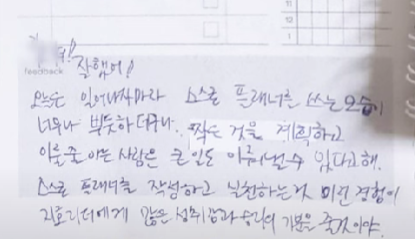 잘했어!
feedback
오늘도 일어나자마자 스스로 플래너를 쓰는 모습이
너무나 뿌듯하더구나. 작은 것을 계획하고
이룰줄 아는 사람은 큰 일도 이뤄낼 수 있다고해.
스스로 플래너를 작성하고 실천하는것 이런 경험이
리더에게 많은 성취감과 승리의 기분을 줄것이야.
11
12
1